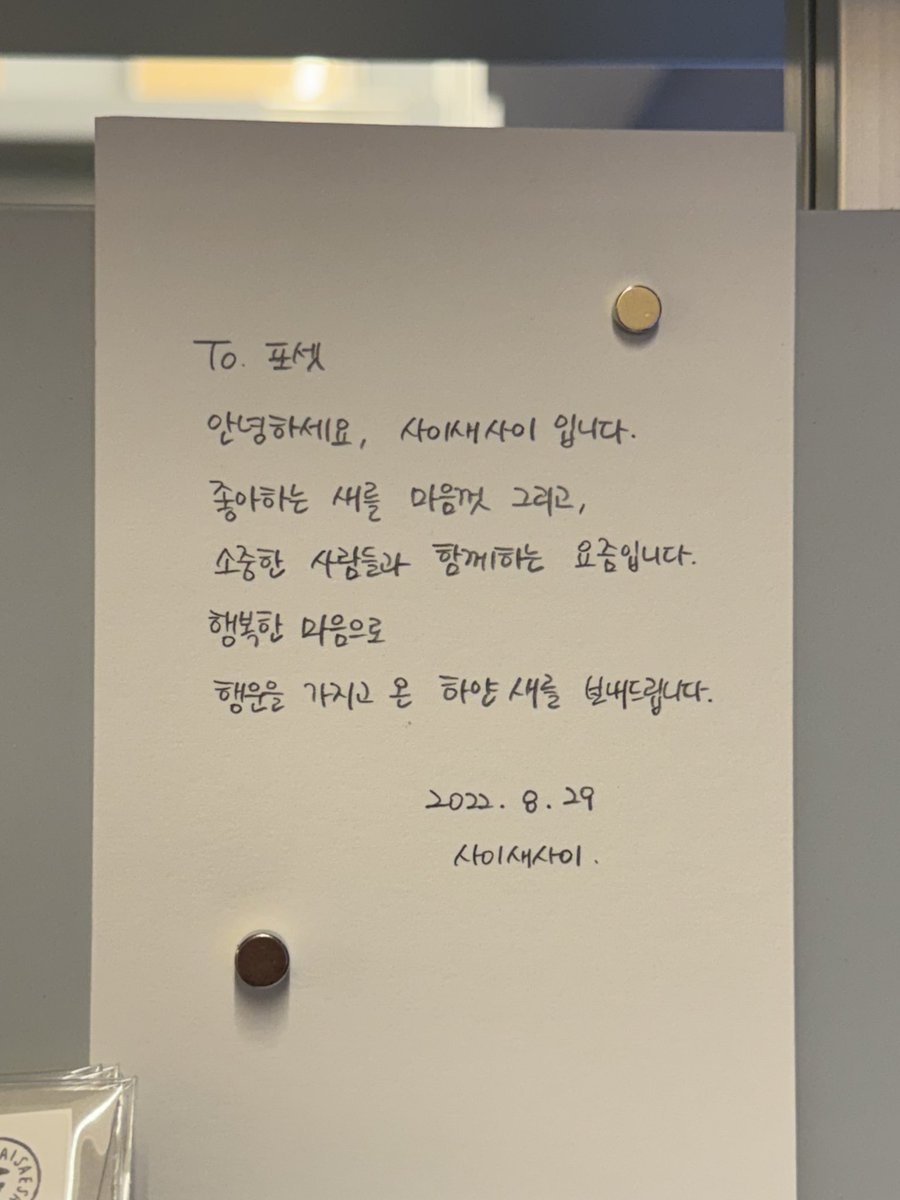 To. 포셋
안녕하세요, 사이새사이 입니다.
좋아하는 새를 마음껏 그리고,
소중한 사람들과 함께하는 요즘입니다.
행복한 마음으로
행운을 가지고 온 하얀 새를 보내드립니다.
2022. 8. 29
사이새사이.